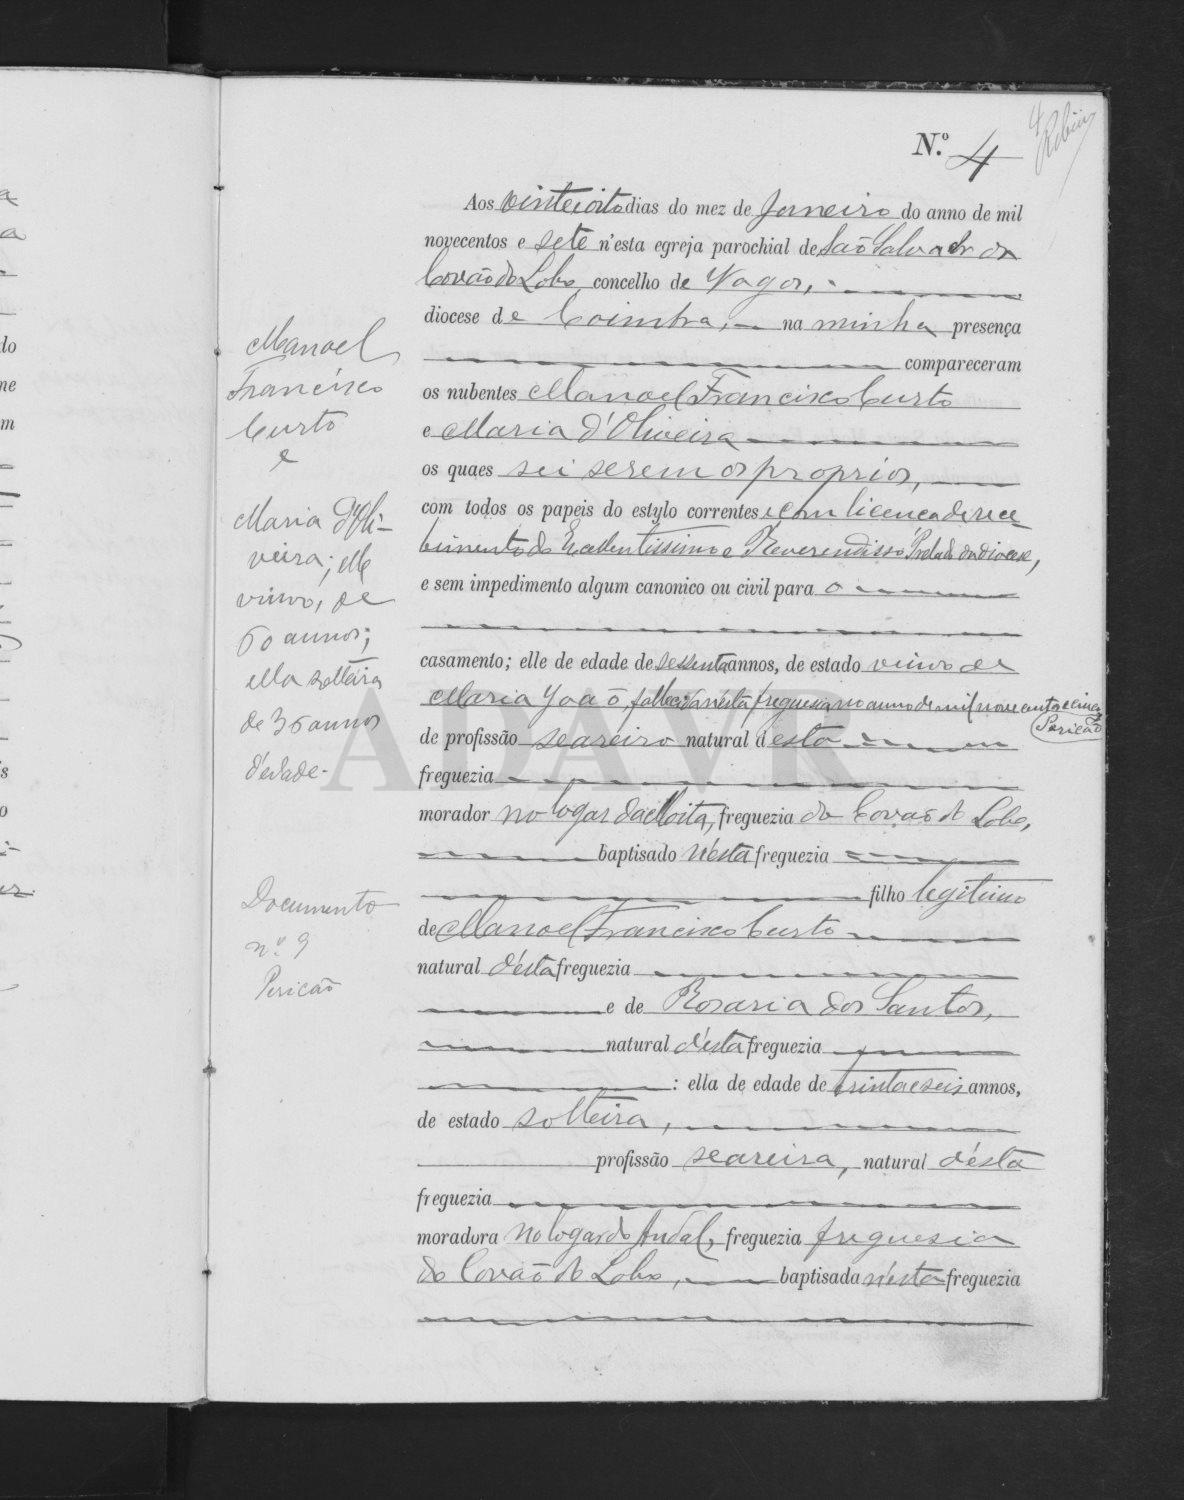 4
N.º 4
Aos vinte oito dias do mez de Janeiro do anno de mil
novecentos e sete n'esta egreja parochial de São Salvador do
Covão do Lobo, concelho de Vagos,
diocese de Coimbra, na minha presença
compareceram
os nubentes Manoel Francisco Curto
e Maria d'Oliveira
os quaes sei serem os proprios,
com todos os papeis do estylo correntes, e com licença de rece-
bimento do Excellentissimo e Reverendisso Prelado da diocese,
e sem impedimento algum canonico ou civil para o
casamento; elle de edade de sessenta annos, de estado viuvo de
Maria João, fallecida n'esta freguesia no anno de mil nove centos e cinco
Pericão
de profissão seareiro natural d'esta
freguezia
morador no logar da Moita, freguezia do Covão do Lobo,
baptisado n'esta freguezia
filho legitimo
de Manoel Francisco Curto
natural d'esta freguezia
e de Rosaria dos Santos,
natural d'esta freguezia
: ella de edade de trinta e seis annos,
de estado solteira,
profissão seareira, natural d'esta
freguezia
moradora no logar do Andal, freguezia freguesia
do Covão do Lobo, baptisada n'esta freguezia
Manoel
Francisco
Curto
e
Maria d'Oli-
veira; elle
viuvo, de
60 annos;
ella solteira
de 36 annos
d'edade.
Documento
n.º 9
Pericão
ADAVR